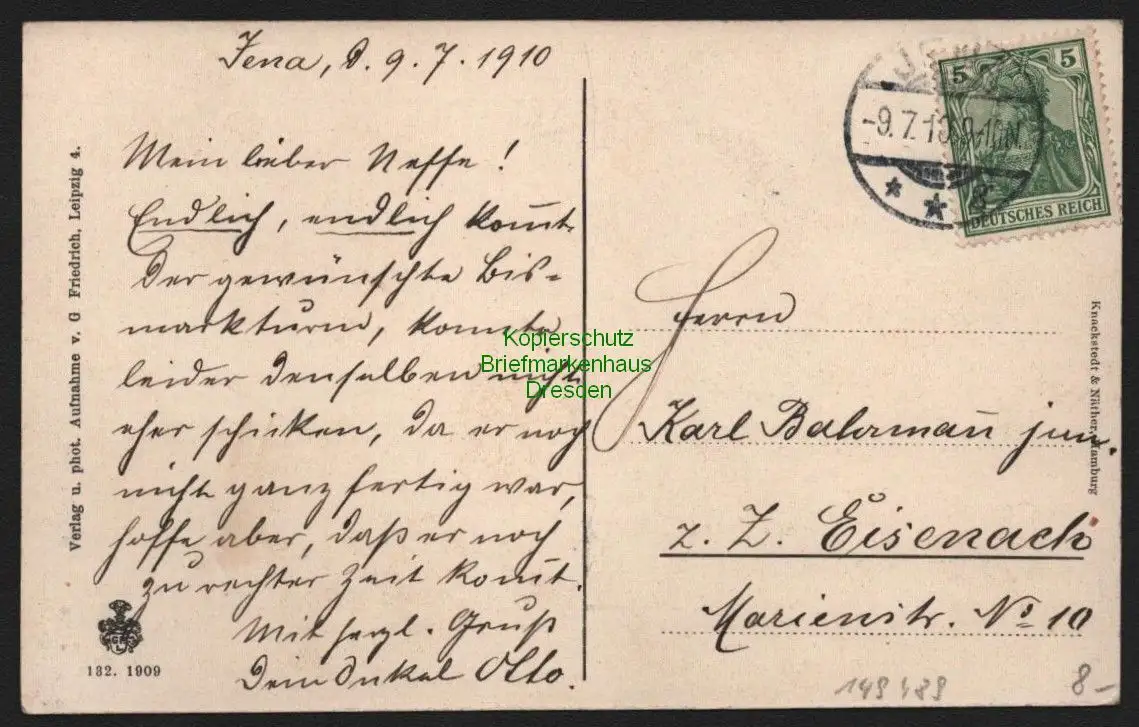 Jena, d. 9. 7. 1910
Mein lieber Neffe!
Endlich, endlich kom̄t
der gewünschte Bis-
markturm, konnte
leider denselben nicht
eher schicken, da er noch
nicht ganz fertig war,
hoffe aber, daß er noch
zu rechter Zeit kom̄t.
Mit herzl. Gruß
Dein Onkel Otto.
Verlag u. phot. Aufnahme v. G Friedrich, Leipzig 4.
132. 1909
JENA
-9.7.10.9-10N.
* *
5 5
DEUTSCHES REICH
Herrn
Karl Bahrman̄ jun.
z. Z. Eisenach
Marienstr. No 10
Knackstedt & Näther, Hamburg
Kopierschutz
Briefmarkenhaus
Dresden
149489
8-